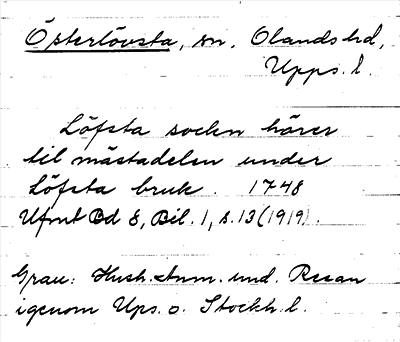 Österlövsta, sn, Olands hd,
Upps. l.
Löfsta sockn hörer
til mästadelen under
Löfsta bruk. 1748
Ufmt Bd 8, Bil. 1, s. 13 (1919).
Grau: Hush. Anm. und. Resan
igenom Ups. o. Stockh. l.